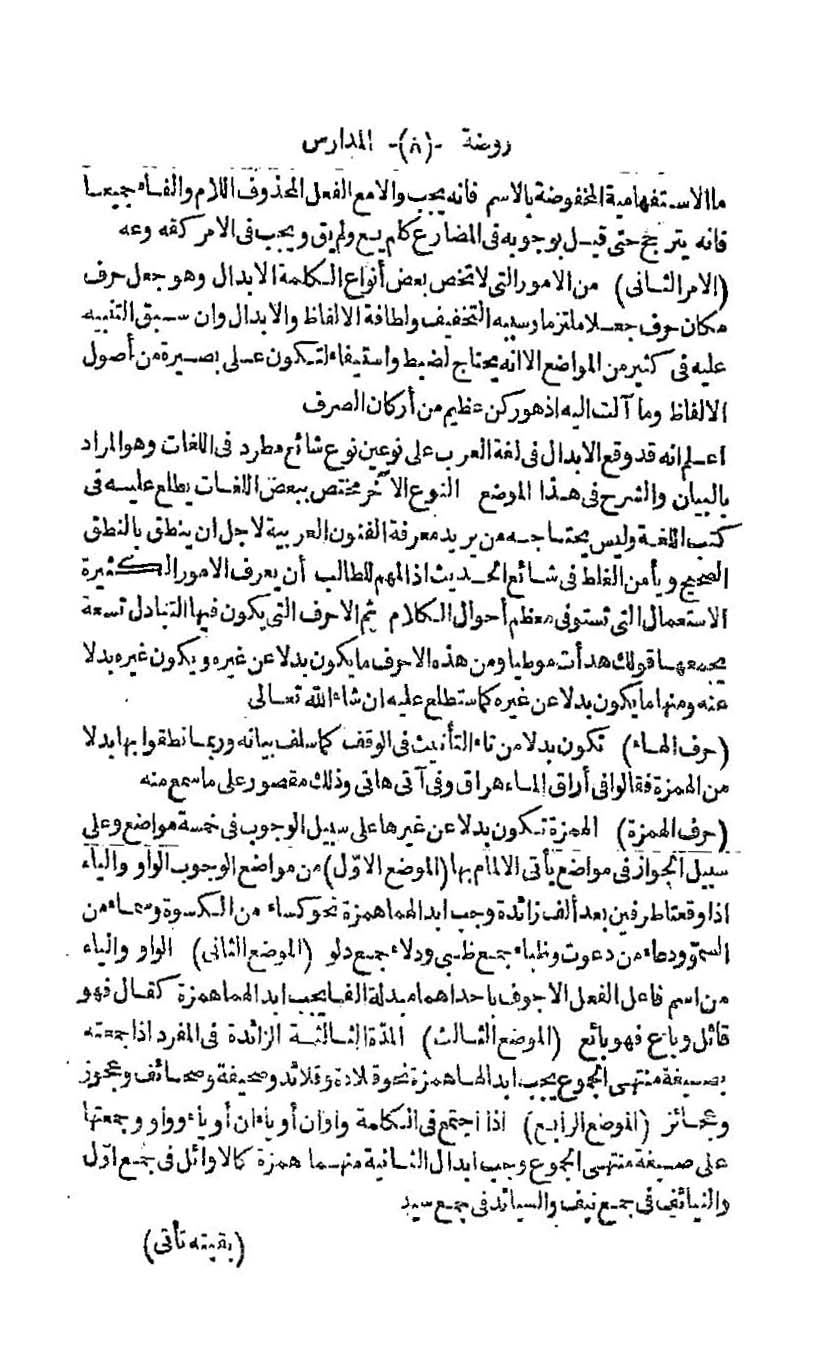 روضة -(٨)- المدارس
ما الاستفهامية المخفوضة بالاسم فانه يجب والامع الفعل المحذوف اللام والفاء جميعا
فانه يترجح حتى قيل بوجوبه فى المضارع كلم يع ولم يق ويجب فى الامر كقه وعه
(الامر الثانى) من الامور التى لا تخص بعض أنواع الكلمة الابدال وهو جعل حرف
مكان حرف جعلا ملتزما وسببه التخفيف ولطافة الالفاظ والابدال وان سبق التنبيه
عليه فى كثير من المواضع الا انه يحتاج لضبط واستيفاء لتكون على بصيرة من أصول
الالفاظ وما آلت اليه اذ هو ركن عظيم من أركان الصرف
اعلم انه قد وقع الابدال فى لغة العرب على نوعين نوع شائع مطرد فى اللغات وهو المراد
بالبيان والشرح فى هذا الموضع النوع الآخر مختص ببعض اللغات يطلع عليه فى
كتب اللغة وليس يحتاجه من يريد معرفة الفنون العربية لاجل ان ينطق بالنطق
الصحيح ويأمن الغلط فى شائع الحديث اذ المهم للطالب أن يعرف الامور الكثيرة
الاستعمال التى تستوفى معظم أحوال الكلام ثم الاحرف التى يكون فيها التبادل تسعة
يجمعها قولك هدأت موطيا ومن هذه الاحرف ما يكون بدلا عن غيره ويكون غيره بدلا
عنه ومنها ما يكون بدلا عن غيره كما ستطلع عليه ان شاء الله تعالى
(حرف الهاء) تكون بدلا من تاء التأنيث فى الوقف كما سلف بيانه وربما نطقوا بها بدلا
من الهمزة فقالوا فى أراق الماء هراق وفى آتى هاتى وذلك مقصور على ما سمع منه
(حرف الهمزة) الهمزة تكون بدلا عن غيرها على سبيل الوجوب فى خمسة مواضع وعلى
سبيل الجواز فى مواضع يأتى الالمام بها (الموضع الاوّل) من مواضع الوجوب الواو والياء
اذا وقعتا طرفين بعد ألف زائدة وجب ابدالهما همزة نحو كساء من الكسوة وسماء من
السموّ ودعاء من دعوت وظباء جمع ظبى ودلاء جمع دلو (الموضع الثانى) الواو والياء
من اسم فاعل الفعل الاجوف باحداهما مبدلة الفا يجب ابدالهما همزة كقال فهو
قائل وباع فهو بائع (الموضع الثالث) المدّة الثالثة الزائدة فى المفرد اذا جمعته
بصيغة منتهى الجموع يجب ابدالها همزة نحو قلادة وقلائد وصحيفة وصحائف وعجوز
وعجائز (الموضع الرابع) اذا اجتمع فى الكلمة واوان أو ياءان أو ياء وواو وجمعتها
على صيغة منتهى الجموع وجب ابدال الثانية منهما همزة كالاوائل فى جمع اوّل
والنيائف فى جمع نيف والسيائد فى جمع سيد
(بقيته تأتى)